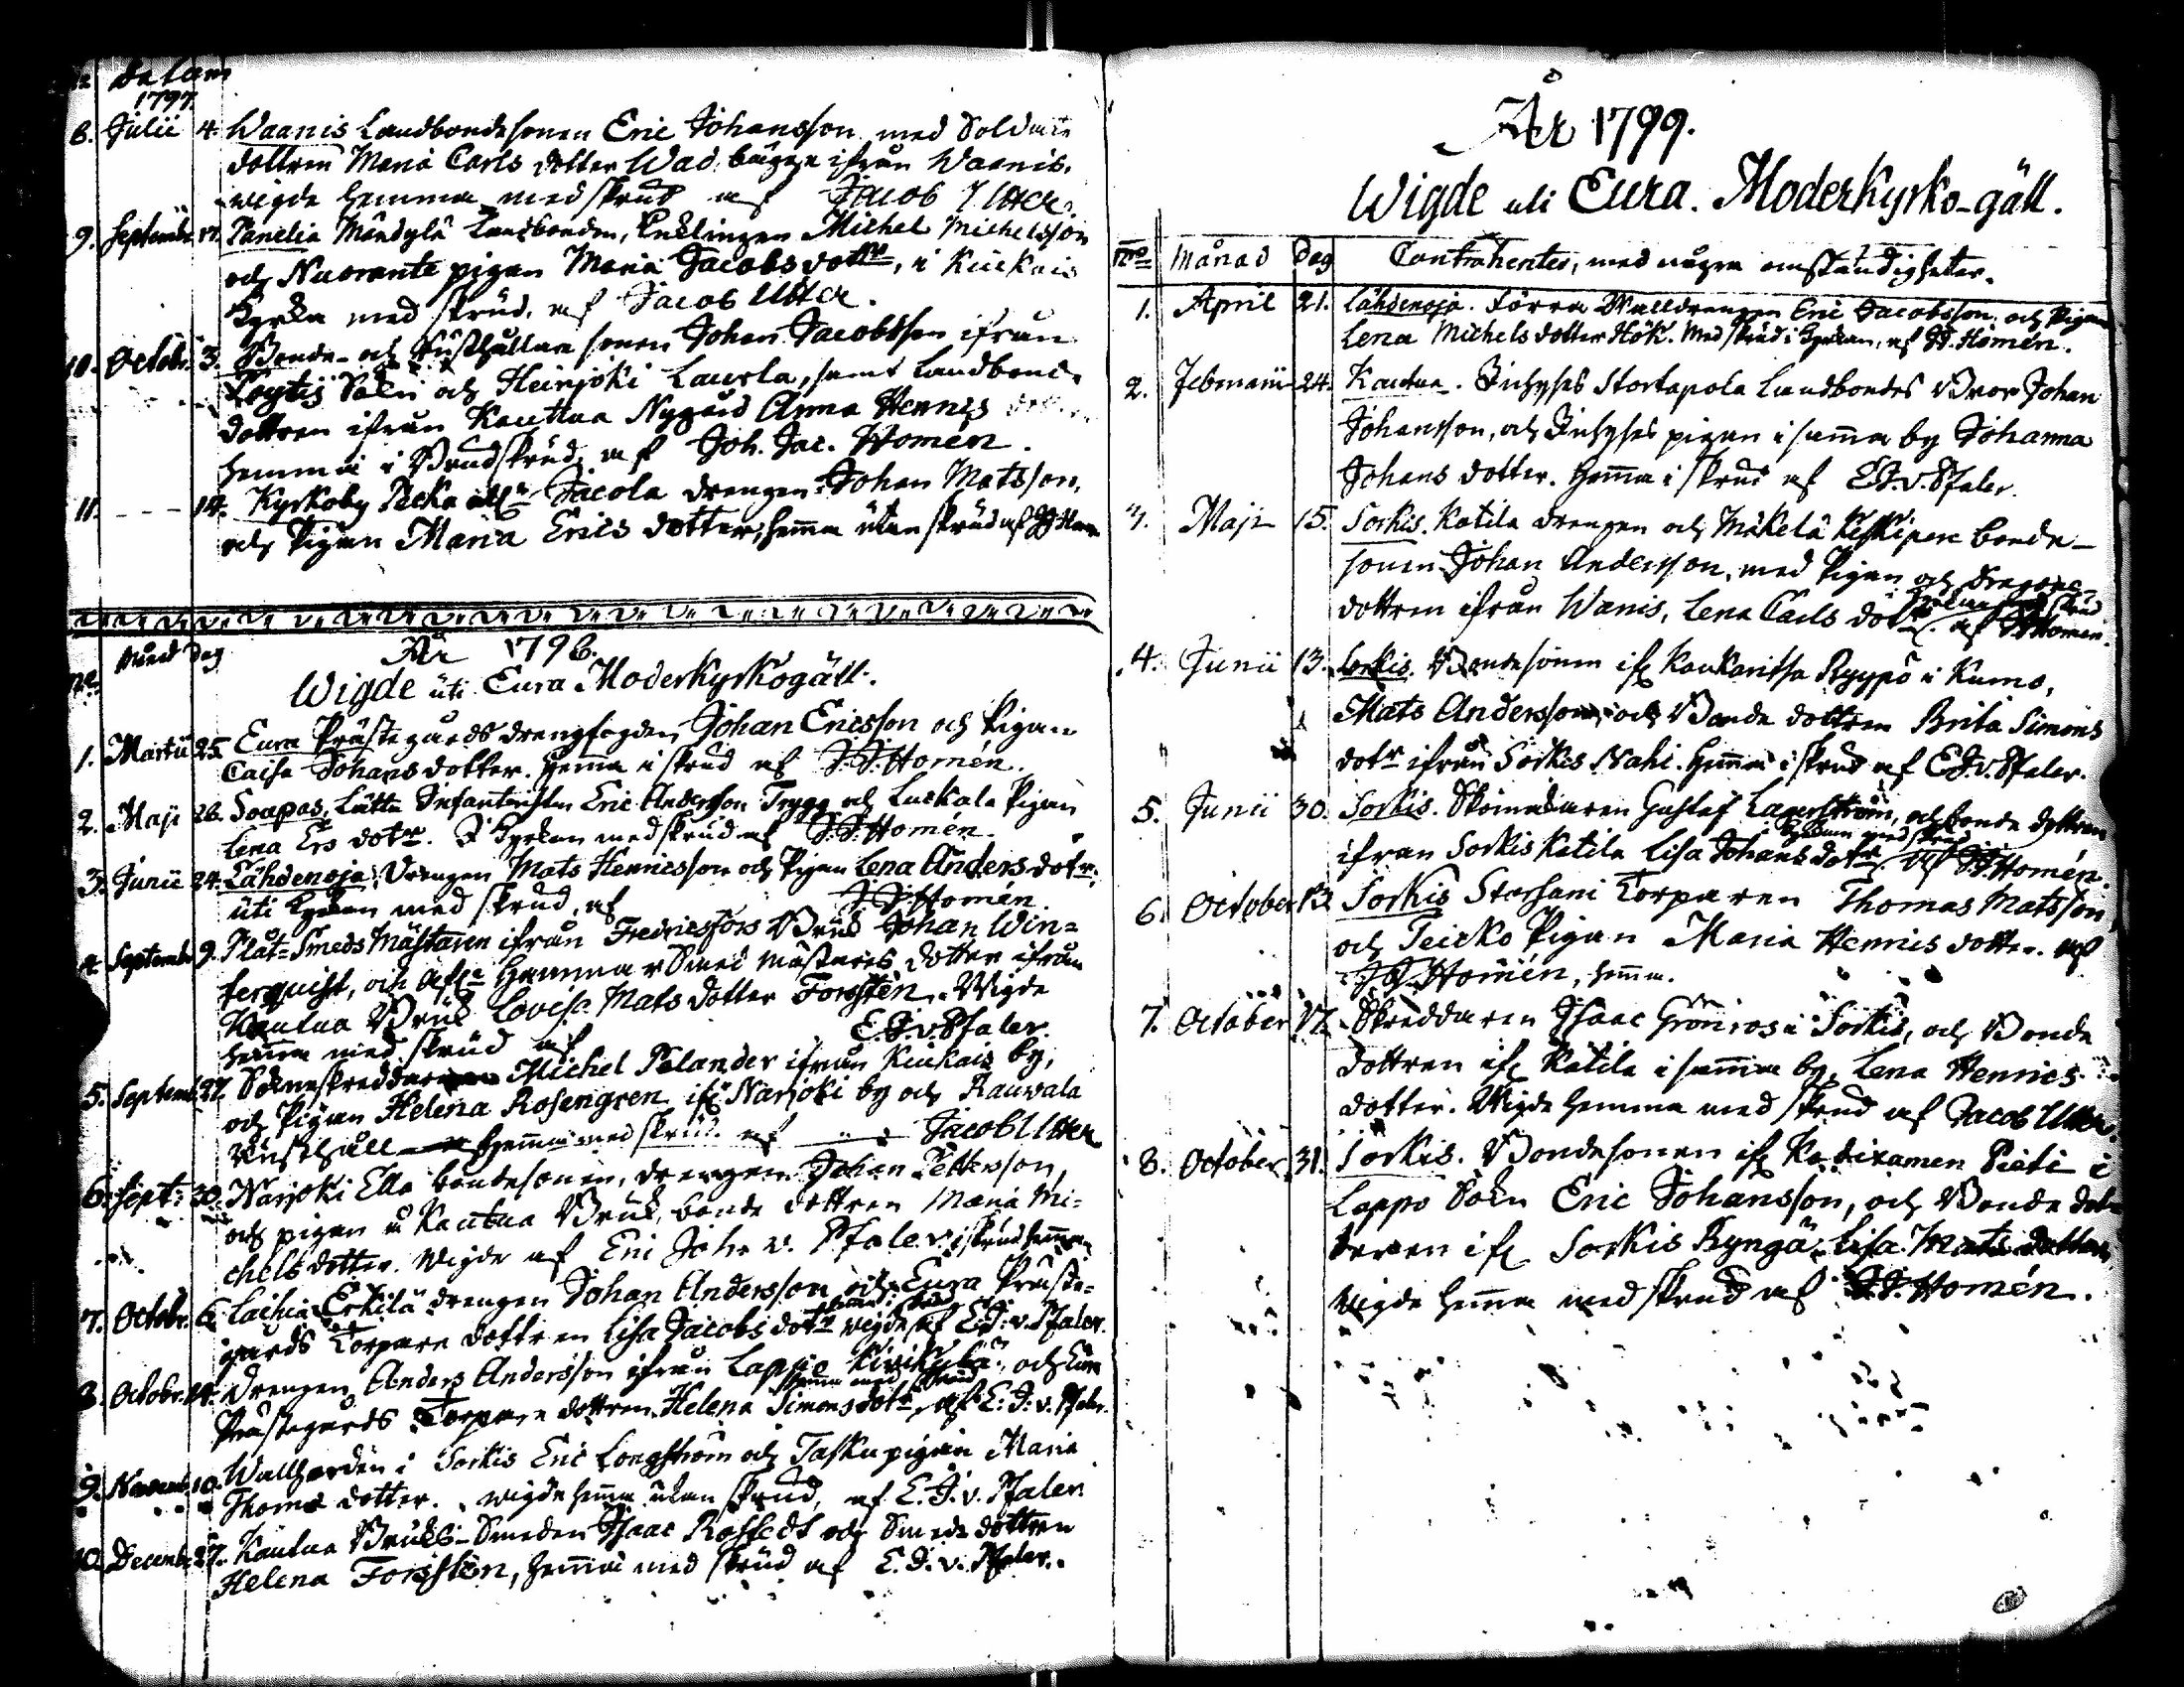 Datum
1797.
8. Julii 4. Waanis Landbondesonen Eric Johansson med Soldate
dottren Maria Carls dotter Wad, bägge ifrån Waanis.
wigde hemma med skrud af Jacob Utter.
9. Septembr 17. Panelia Mändylä Landbonden, Enklingen Michel Michelsson
och Nuorante pigan Maria Jacobs dottr, i Kiukais
Kyrka med skrud, af Jacob Utter.
10. Octobr. 3. Bonde- och Rusthållare sonen Johan Jacobsson ifrån
Säkn och Heinjoki Laurla, samt Landbonde
dottren ifrån Kauttua Nygård Anna Henrics
hemma i Brudskrud, af Joh. Jac. Homén.
11. - - - 14. Kyrkoby Pecka Jacola drengen Johan Matsson,
och Pigan Maria Erics dotter, hema utan skrud af JJ Homén
År 1798.
no månad dag
Wigde uti Eura Moderkyrkogäll.
1. Martii 25. Eura Prästegårds drengfogden Johan Ericsson och Pigan
Caisa Johans dotter. Hema i skrud af J.J. Homén.
2. Maji 26. Soupas, Lätta Infanteristen Eric Andersson Trygg och Luckala Pigan
Lena Ers dotr. I Kyrkan med skrud af J.J. Homén.
3. Junii 24. Lähdenoja, Drengen Mats Henricsson och Pigan Lena Anders dotr.
uti Kyrkan med skrud, af J.J. Homén.
4. Septembr 9. Plåt-Smeds Mästaren ifrån Fredricsfors Bruk Johan Win-
terquist, och Hammar Smed mästares Dotter ifrån
Kautua Bruk Lovisa Mats dotter Forsstén. Wigde
hemma med skrud af E.J. v. Pfaler.
5. Septemb. 27. Sokneskreddaren Michel Polander ifrån Kiukais by,
och Pigan Helena Rosengren if. Narjoki by och Rauvala
Rusthåll hema med skrud af Jacob Utter
6. Sept: 30. Narjoki Ella bondesonen, drengen Johan Pettersson,
och pigan å Kautua Bruk, bonde dottren Maria Mi-
chels dotter. Wigde af Eric Joh. v. Pfaler i skrud hemma
7. Octobr. 6. Laihia Erkilä drengen Johan Andersson och Eura Präste-
gårds Torpare dottren Lisa Jacobs dotr hema i skrud wigde af E.J. v. Pfaler.
8. Octobr. 14. Drengen Anders Andersson ifrån Lappo Kivikylä, och Eura
Prästegårds Torpare dottren Helena Simons dotr hema med skrud af E.J. v. Pfaler.
9. Novemb. 10. Wallherden i Sorkis Eric Longström och Tasku pigan Maria
Thoms dotter. wigde hema utan skrud, af E.J. v. Pfaler.
10. Decemb. 27. Kautua Bruks-Smeden Isaac Rostedt och Smeds dottren
Helena Forsstén, hema med skrud af E.J. v. Pfaler.
År 1799.
Wigde uti Eura. Moderkyrko-gäll.
Nro Månad Dag Contrahenter, med några omständigheter.
1. April 21. Lähdenoja. Förra Walldrengen Eric Jacobsson och Pigan
Lena Michels dotter Hök. Med skrud i Kyrkan, af JJ. Homén.
2. Februarii 24. Kautua. Inhyses Stortapola Landbondes Bror Johan
Johansson, och Inhyses pigan i sama by Johanna
Johans dotter. Hema i skrud af E.J. v. Pfaler.
3. Maji 15. Sorkis. Katila drengen och Mäkelä Bonde-
sonen Johan Andersson, med Pigan och Dragone-
dottren ifrån Wanis, Lena Carls dotr hema med skrud af JJ Homén.
4. Junii 13. Sorkis. Bondesonen if. Kaukaritsa Ryypö i Kumo,
Mats Andersson, och Bonde dottren Brita Simons
dotr ifrån Sorkis Nahi. Hema i skrud af E.J. v. Pfaler.
5. Junii 30. Sorkis. Skomakaren Gustaf Lagerström, och bonde dottren
ifrån Sorkis Katila Lisa Johans dotr i Kyrkan med skrud af JJ Homén.
6. October 13. Sorkis Storsani Torparen Thomas Matsson
och Teicko Pigan Maria Henrics dotter. af
J.J. Homén, hema.
7. October 17. Skreddaren Isaac Grönroos i Sorkis, och Bonde
dottren if. Katila i samma by, Lena Henrics
dotter. Wigde hemma med skrud af Jacob Utter.
8. October 31. Sorkis. Bondesonen if. Kodixamen Pieti i
Lappo Sokn Eric Johansson, och Bonde dot-
teren if. Sorkis Ryngä, Lisa Mats dotter
wigde hema med skrud af J.J. Homén.